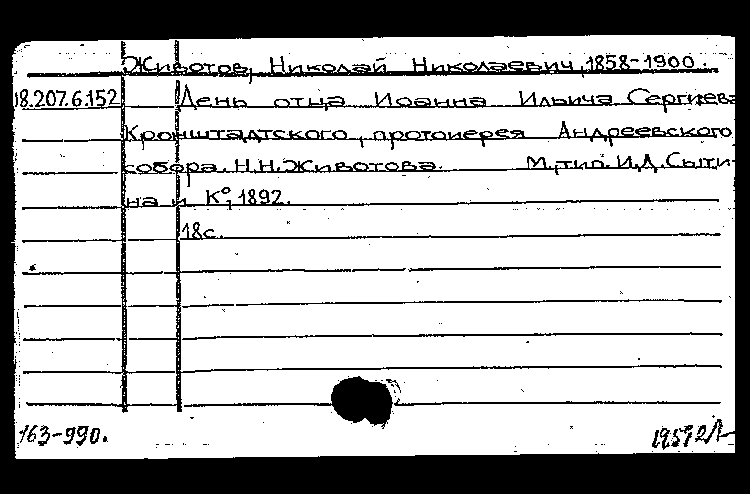 Животов, Николай Николаевич, 1858-1900.
18.207.6.152 День отца Иоанна Ильича Сергиева
Кронштадтского, протоиерея Андреевского
собора. Н.Н.Животова. М., тип. И.Д.Сыти-
на и К°, 1892.
18с.
163-990.